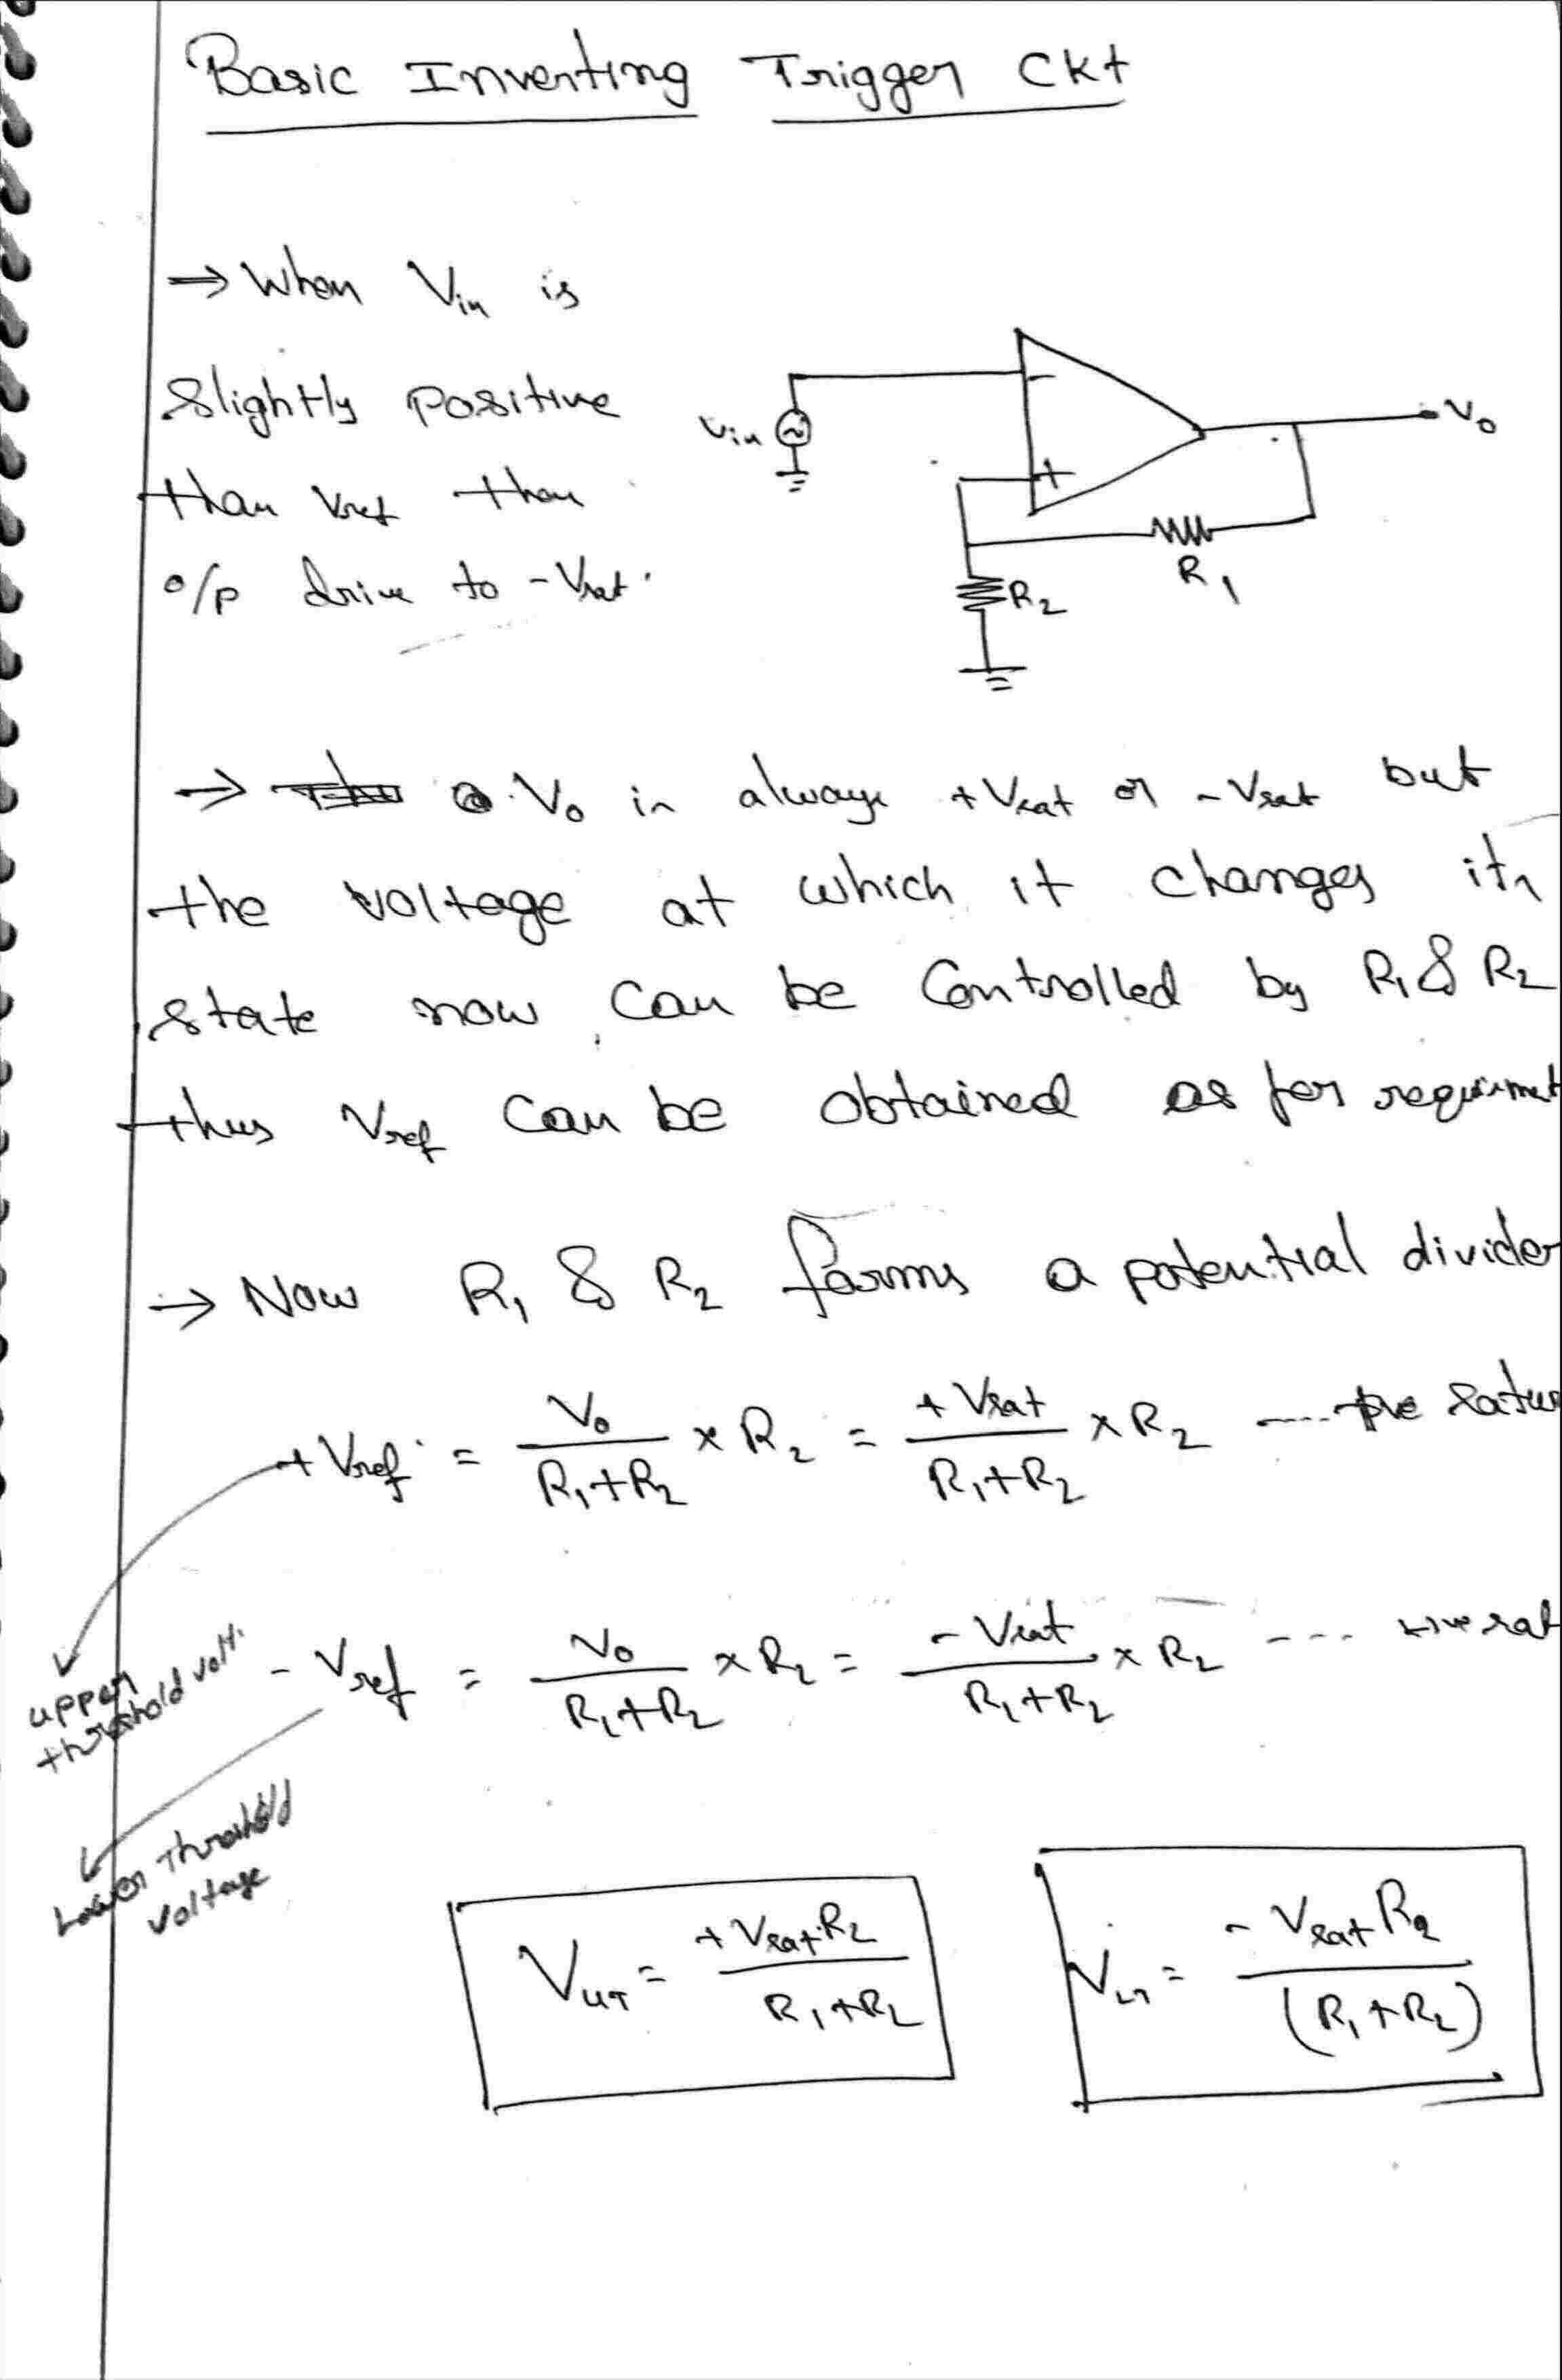 Basic Inverting Trigger Ckt
→ When Vin is
slightly positive
than Vref then
o/p drive to -Vsat.
Vin
-
+
Vo
R1
R2
→ Vo is always +Vsat or -Vsat but
the voltage at which it changes its
state now can be Controlled by R1 & R2
thus Vref can be obtained as per
→ Now R1 & R2 forms a potential divider
+ Vref = Vo / (R1+R2) × R2 = +Vsat / (R1+R2) × R2 ----
- Vref = Vo / (R1+R2) × R2 = -Vsat / (R1+R2) × R2 ---
upper
threshold volt.
Lower Threshold
Voltage
VUT = +Vsat R2 / R1+R2
VLT = -Vsat R2 / (R1+R2)